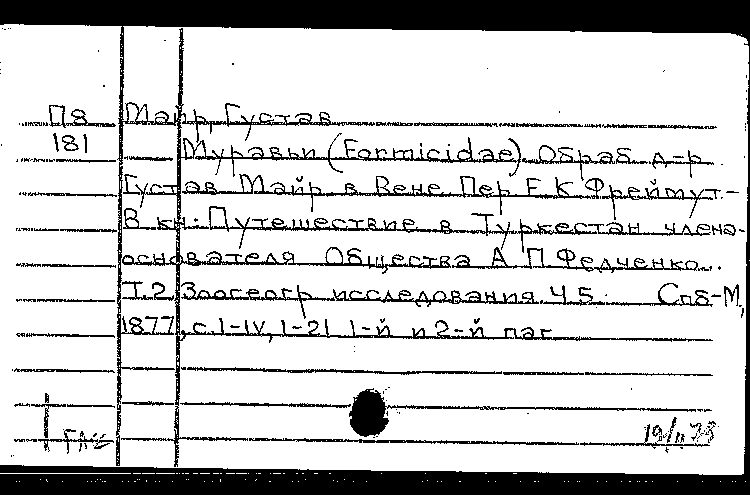 П8 Майр, Густав
181 Муравьи (Formicidae). Обраб. д-р
Густав Майр в Вене. Пер. Е. К. Фреймут.-
В кн.: Путешествие в Туркестан члена-
основателя Общества А. П. Федченко...
Т.2. Зоогеогр. исследования. Ч. 5. Спб-М.,
1877, с. I-IV, 1-21 1-й и 2-й паг.